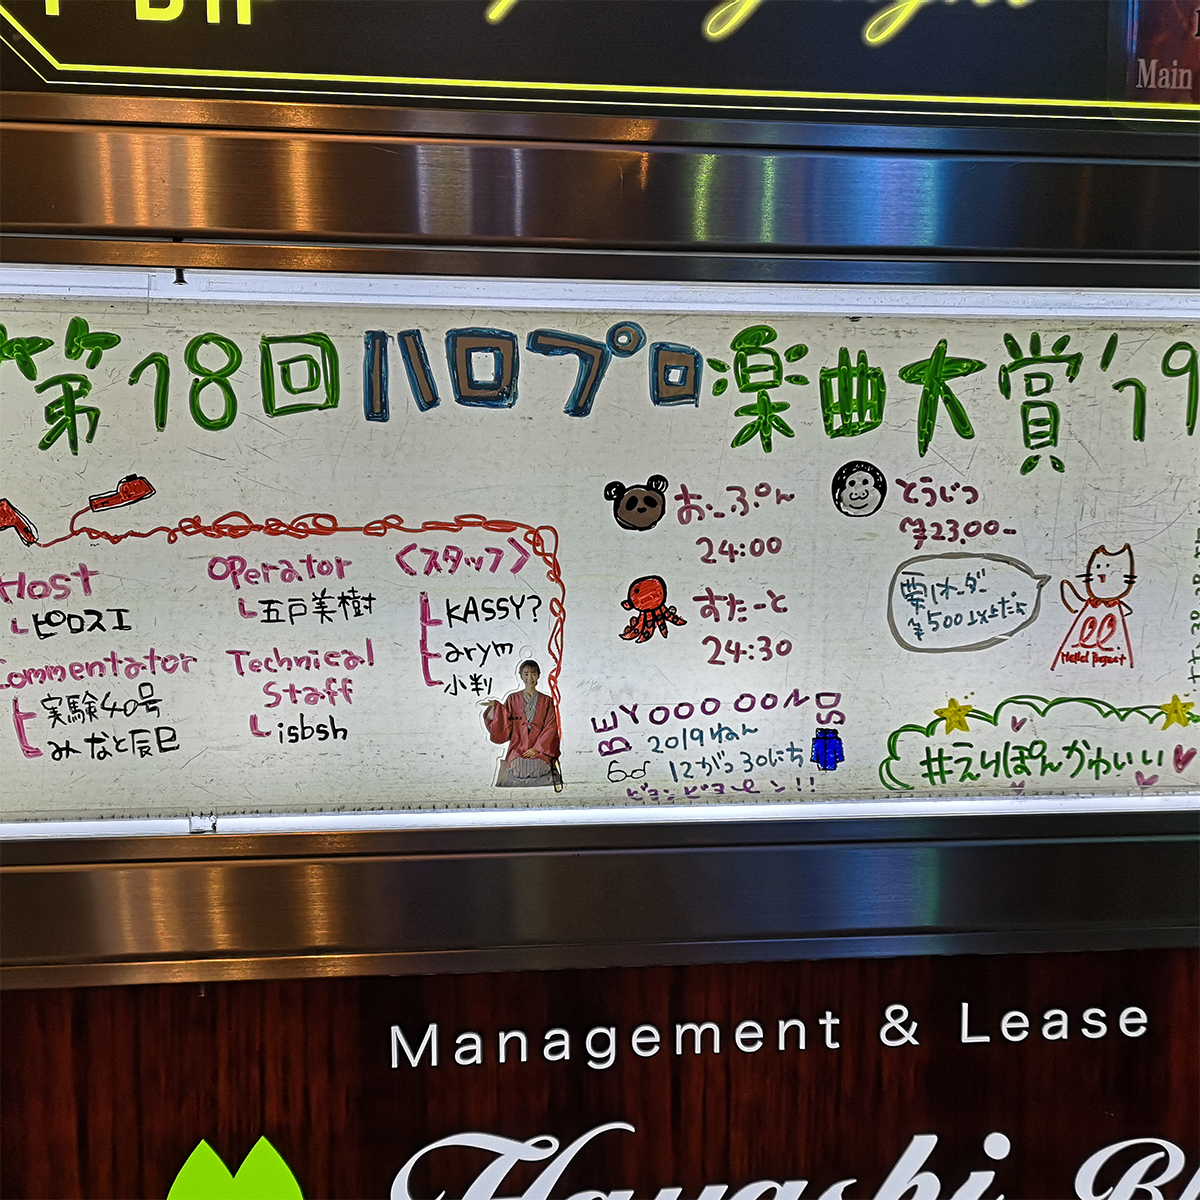 Main
第18回ハロプロ楽曲大賞'19
Host
ピロスエ
Commentator
実験40号
みなと辰巳
Operator
五戸美樹
Technical
Staff
isbsh
<スタッフ>
KASSY?
arym
小判
おーぷん
24:00
すたーと
24:30
とうじつ
¥2300-
要1オーダー
¥500以上だよ
Hello! Project
BEYOOOOONDS
2019ねん
12がつ30にち
#えりぽんかわいい
Management & Lease
Hayashi